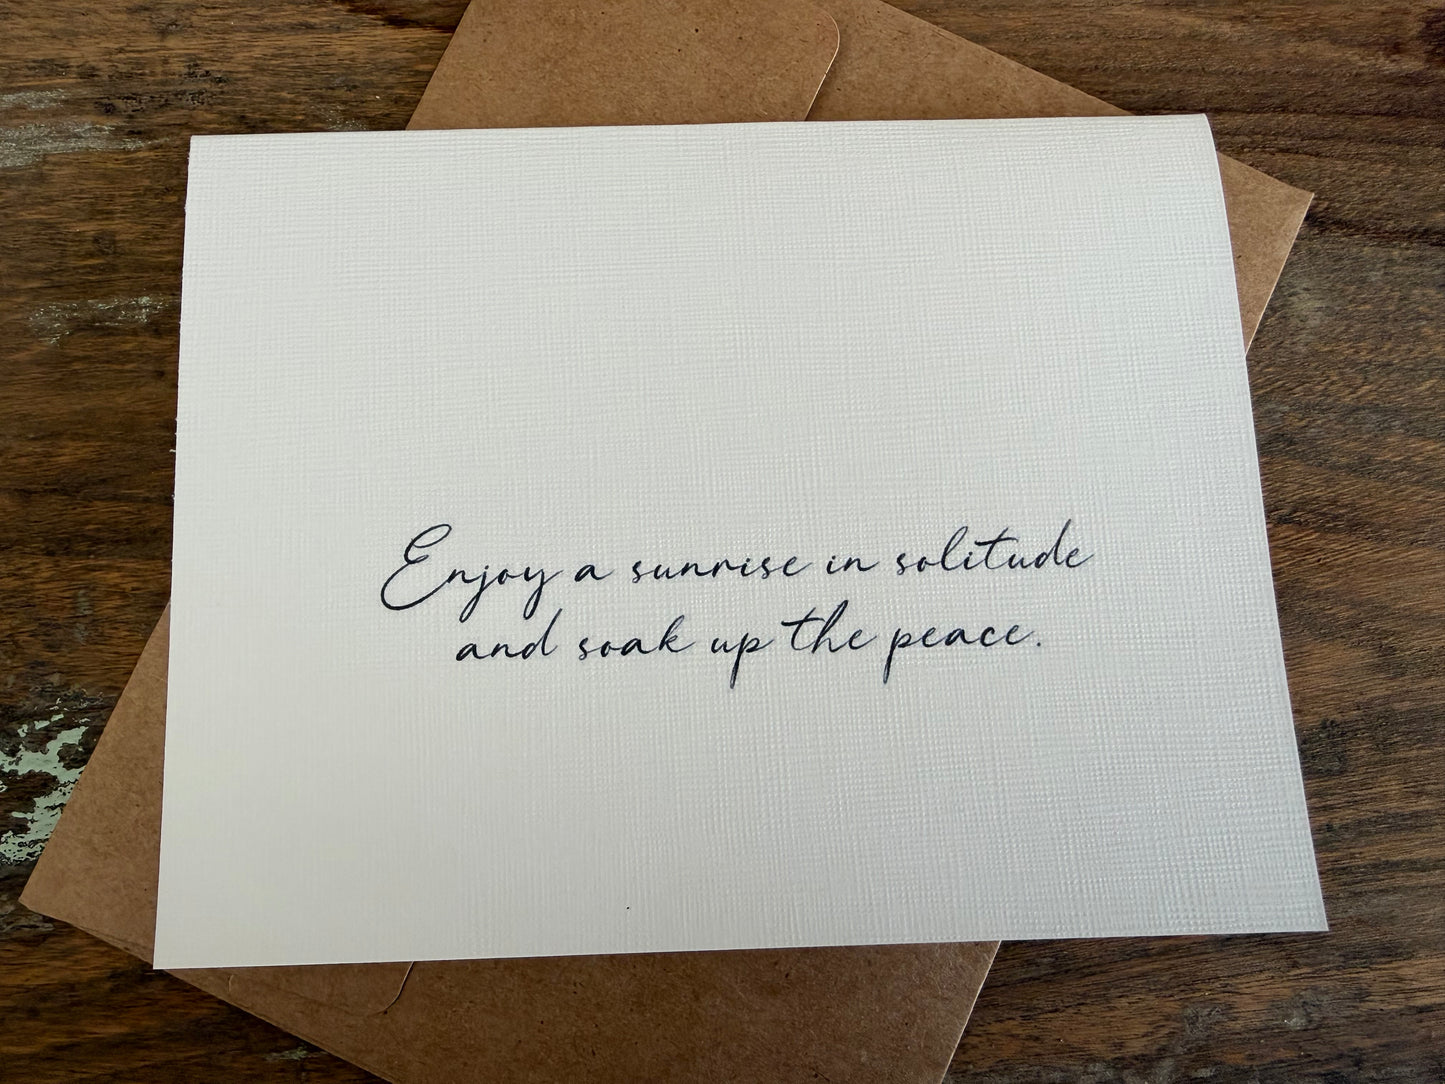 Enjoy a sunrise in solitude
and soak up the peace.